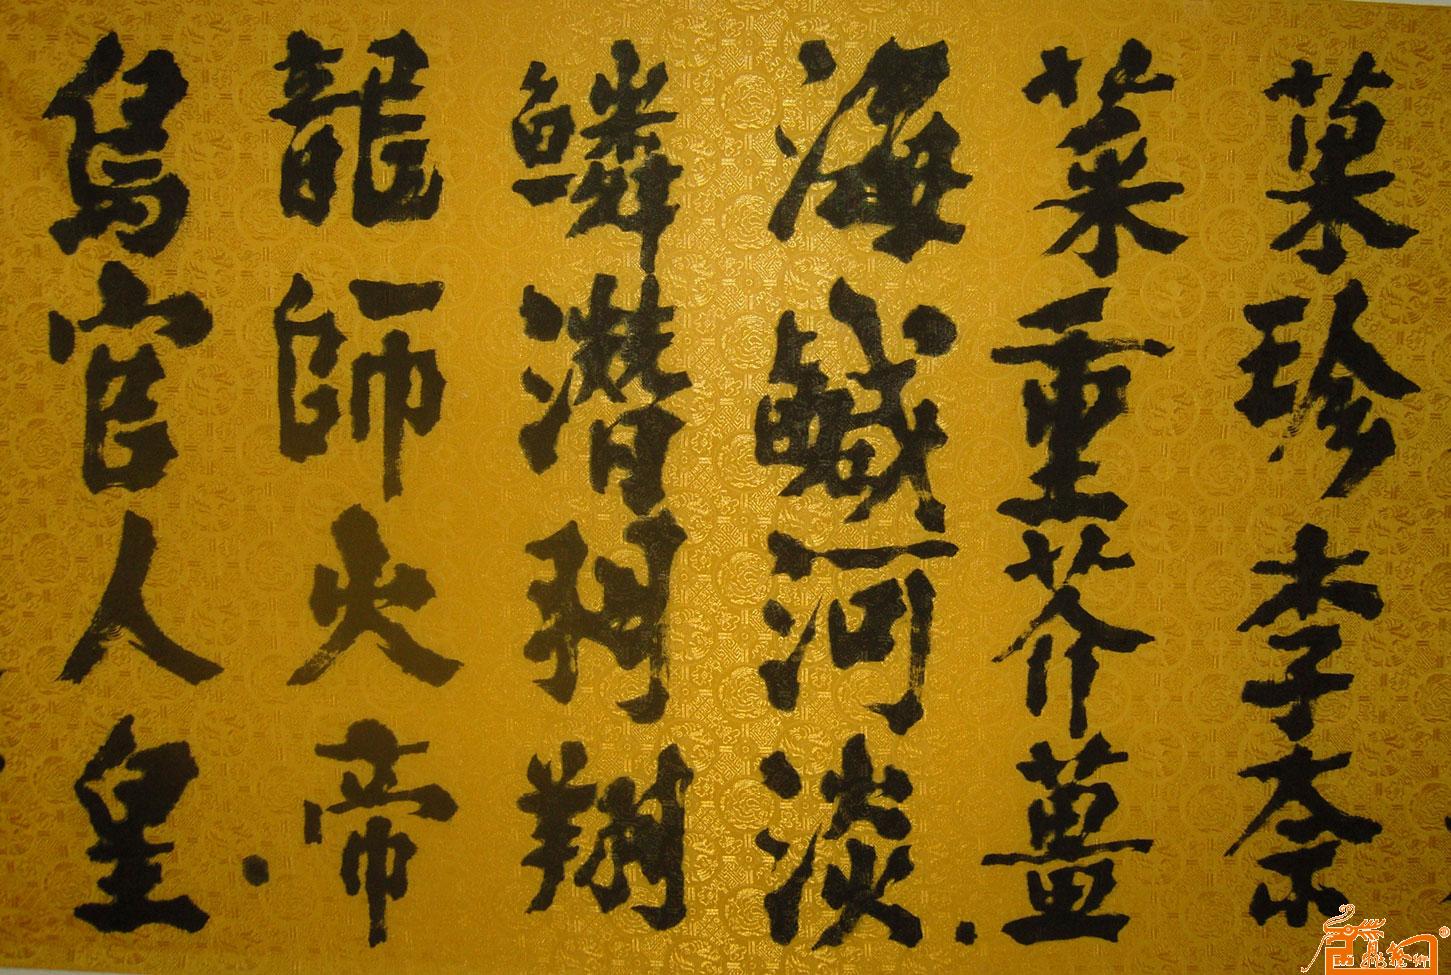 菓珍李柰
菜重芥薑
海鹹河淡.
鱗潛羽翔
龍師火帝.
鳥官人皇